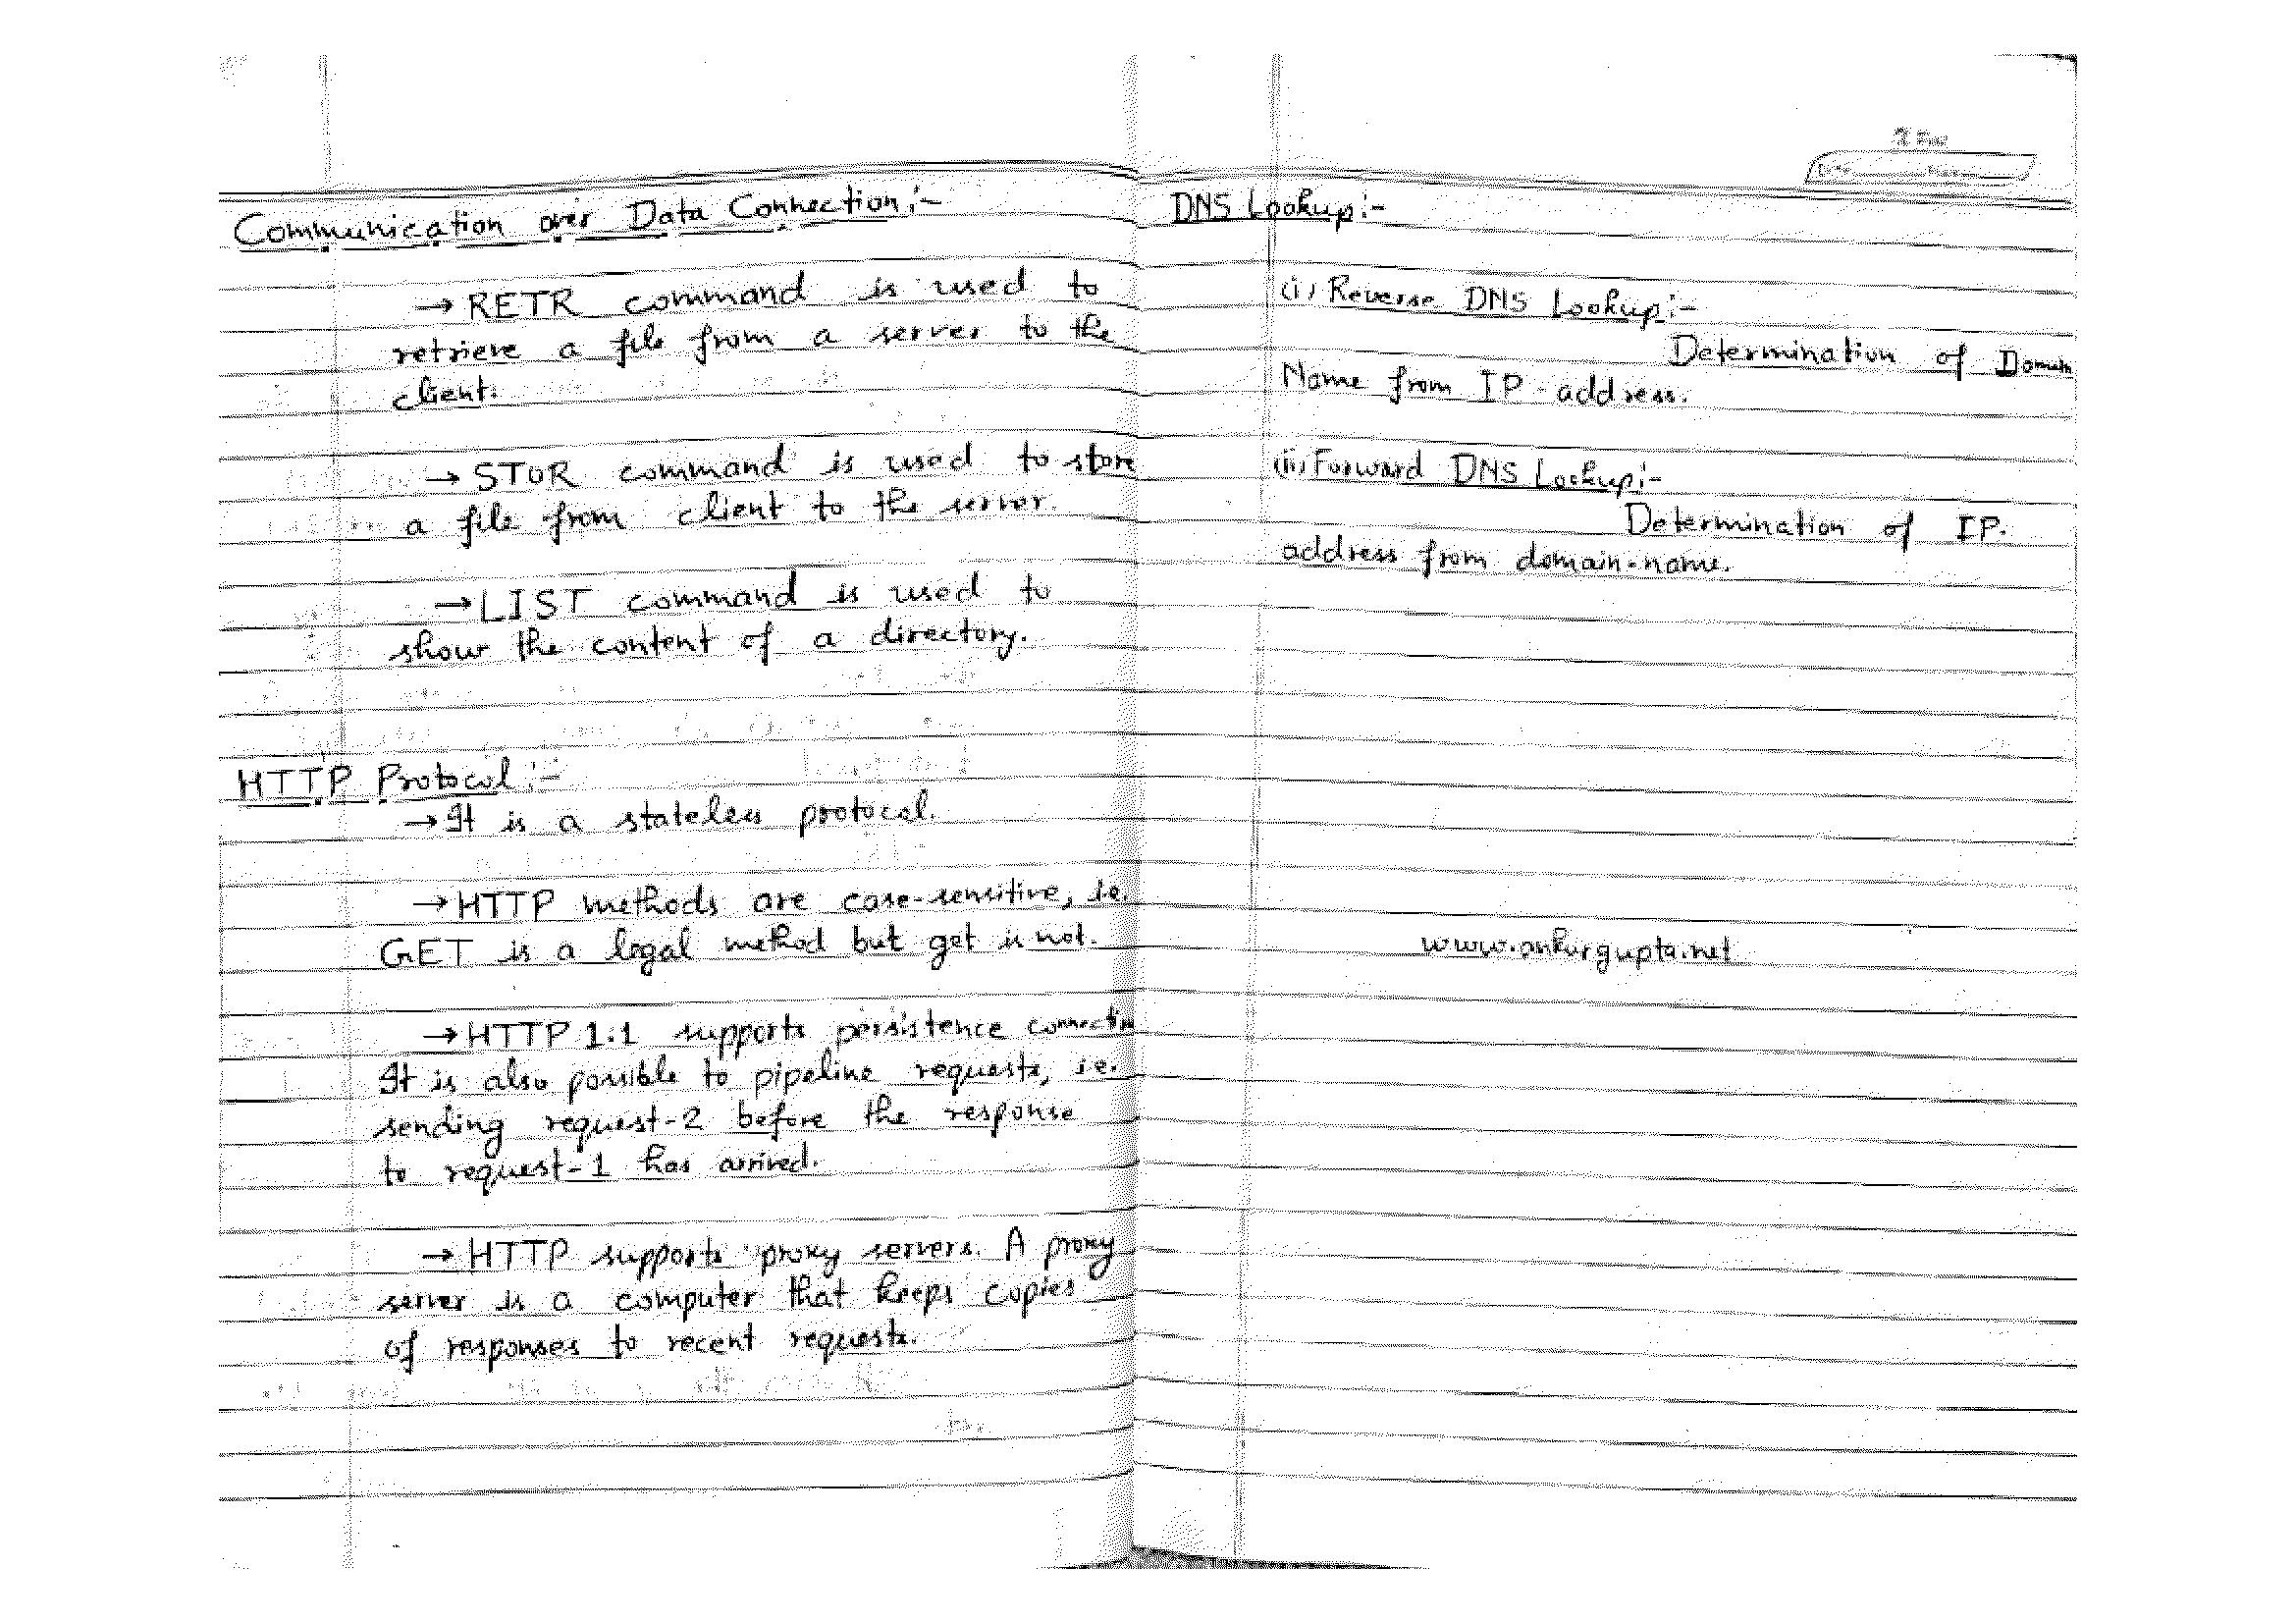 Communication over Data Connection:-
→ RETR command is used to
retrieve a file from a server to the
client.
→ STOR command is used to store
a file from client to the server.
→ LIST command is used to
show the content of a directory.
HTTP Protocol:-
→ It is a stateless protocol.
→ HTTP methods are case-sensitive, i.e.
GET is a legal method but get is not.
→ HTTP 1.1 supports persistence connection
It is also possible to pipeline requests, i.e.
sending request-2 before the response
to request-1 has arrived.
→ HTTP supports proxy servers. A proxy
server is a computer that keeps copies
of responses to recent requests.
DNS Lookup:-
(i) Reverse DNS Lookup:-
Determination of Domain
Name from IP-address.
(ii) Forward DNS Lookup:-
Determination of IP-
address from domain-name.
www.ankurgupta.net